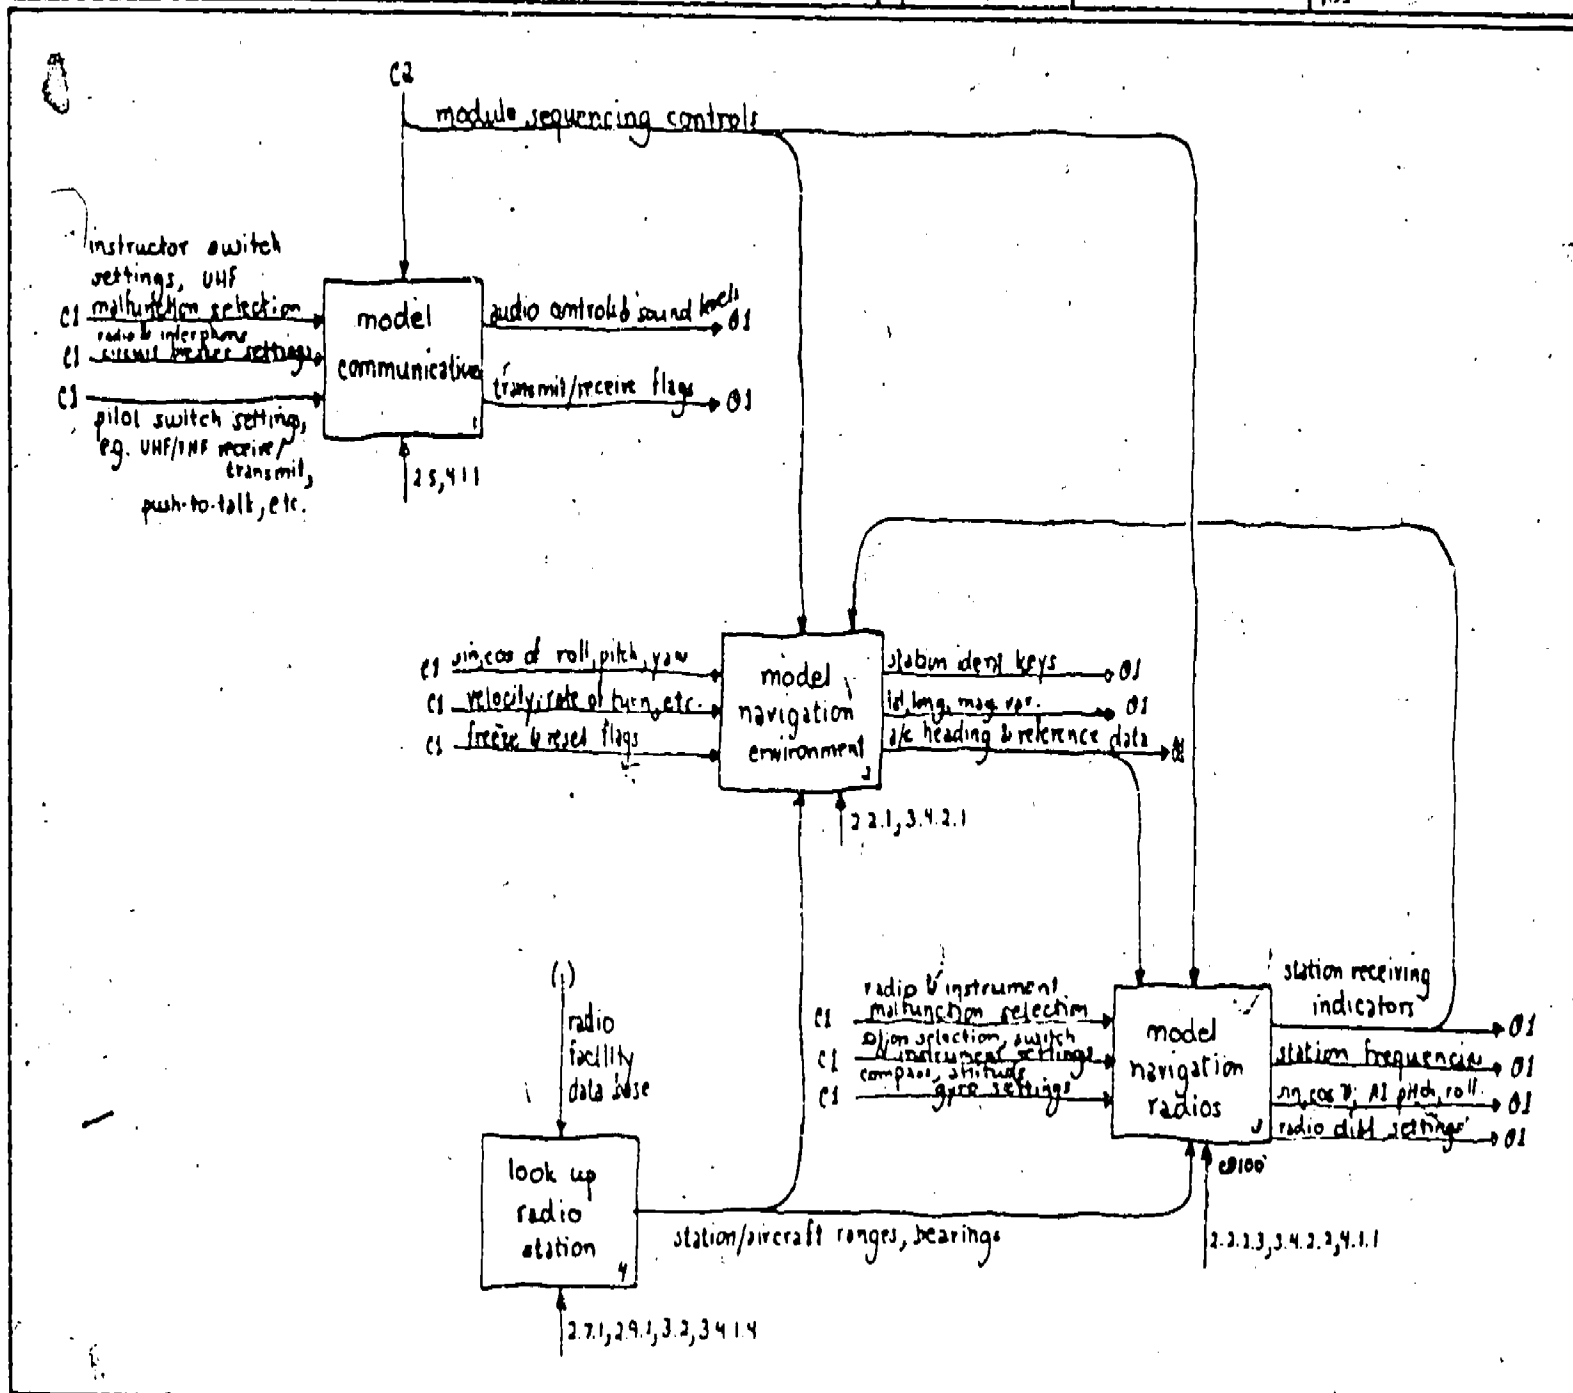 C2
module sequencing controls
instructor switch
settings, UHF
C1 malfunction selection
radio & interphone
C1 circuit breaker settings
C1
pilot switch setting,
e.g. UHF/VHF receive/
transmit,
push-to-talk, etc.
model
communication
1
audio controls & sound levels
O1
transmit/receive flags
O1
2.5, 4.1.1
C1 sin, cos of roll, pitch, yaw
C1 velocity, rate of turn, etc.
C1 freeze & reset flags
model
navigation
environment
2
station ident keys
O1
lat, long, mag var.
O1
a/c heading & reference data
2.2.1, 3.4.2.1
( )
radio
facility
data base
look up
radio
station
4
station/aircraft ranges, bearings
2.7.1, 2.9.1, 3.2, 3.4.1.4
radio & instrument
C1 malfunction selection
selection, switch
C1 & instrument settings
compass, attitude
C1 gyro settings
model
navigation
radios
3
station receiving
indicators
O1
station frequencies
O1
AI pitch, roll
O1
radio dial settings
O1
2.2.2.3, 3.4.2.2, 4.1.1